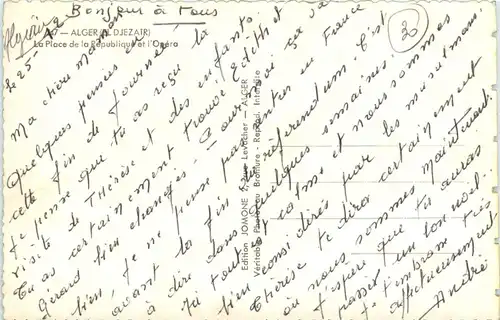 Bonjour à tous
Algérie
le 25
ALGER (EL DJEZAÏR)
La Place de la République et l'Opéra
30
Ma chère maman
Quelques pensées en
cette fin de journée. la
Je pense que tu as reçu la
visite de Thérèse et des enfants.
Tu as certainement trouvé Edith et
Gérard bien changés. Pour moi ça va
bien. Je ne pense pas rentrer en France
avant la fin du référendum. C'est
à dire dans quelques semaines.
Ici tout est calme et nous sommes
bien considérés par les musulmans.
Thérèse te dira certainement
où nous sommes maintenant.
J'espère que tu auras
passé un bon noël.
Je t'embrasse très
affectueusement
André
Edition JOMONE, 2, rue Levacher — ALGER
Véritable Photo au Bromure - Reprod. Interdite